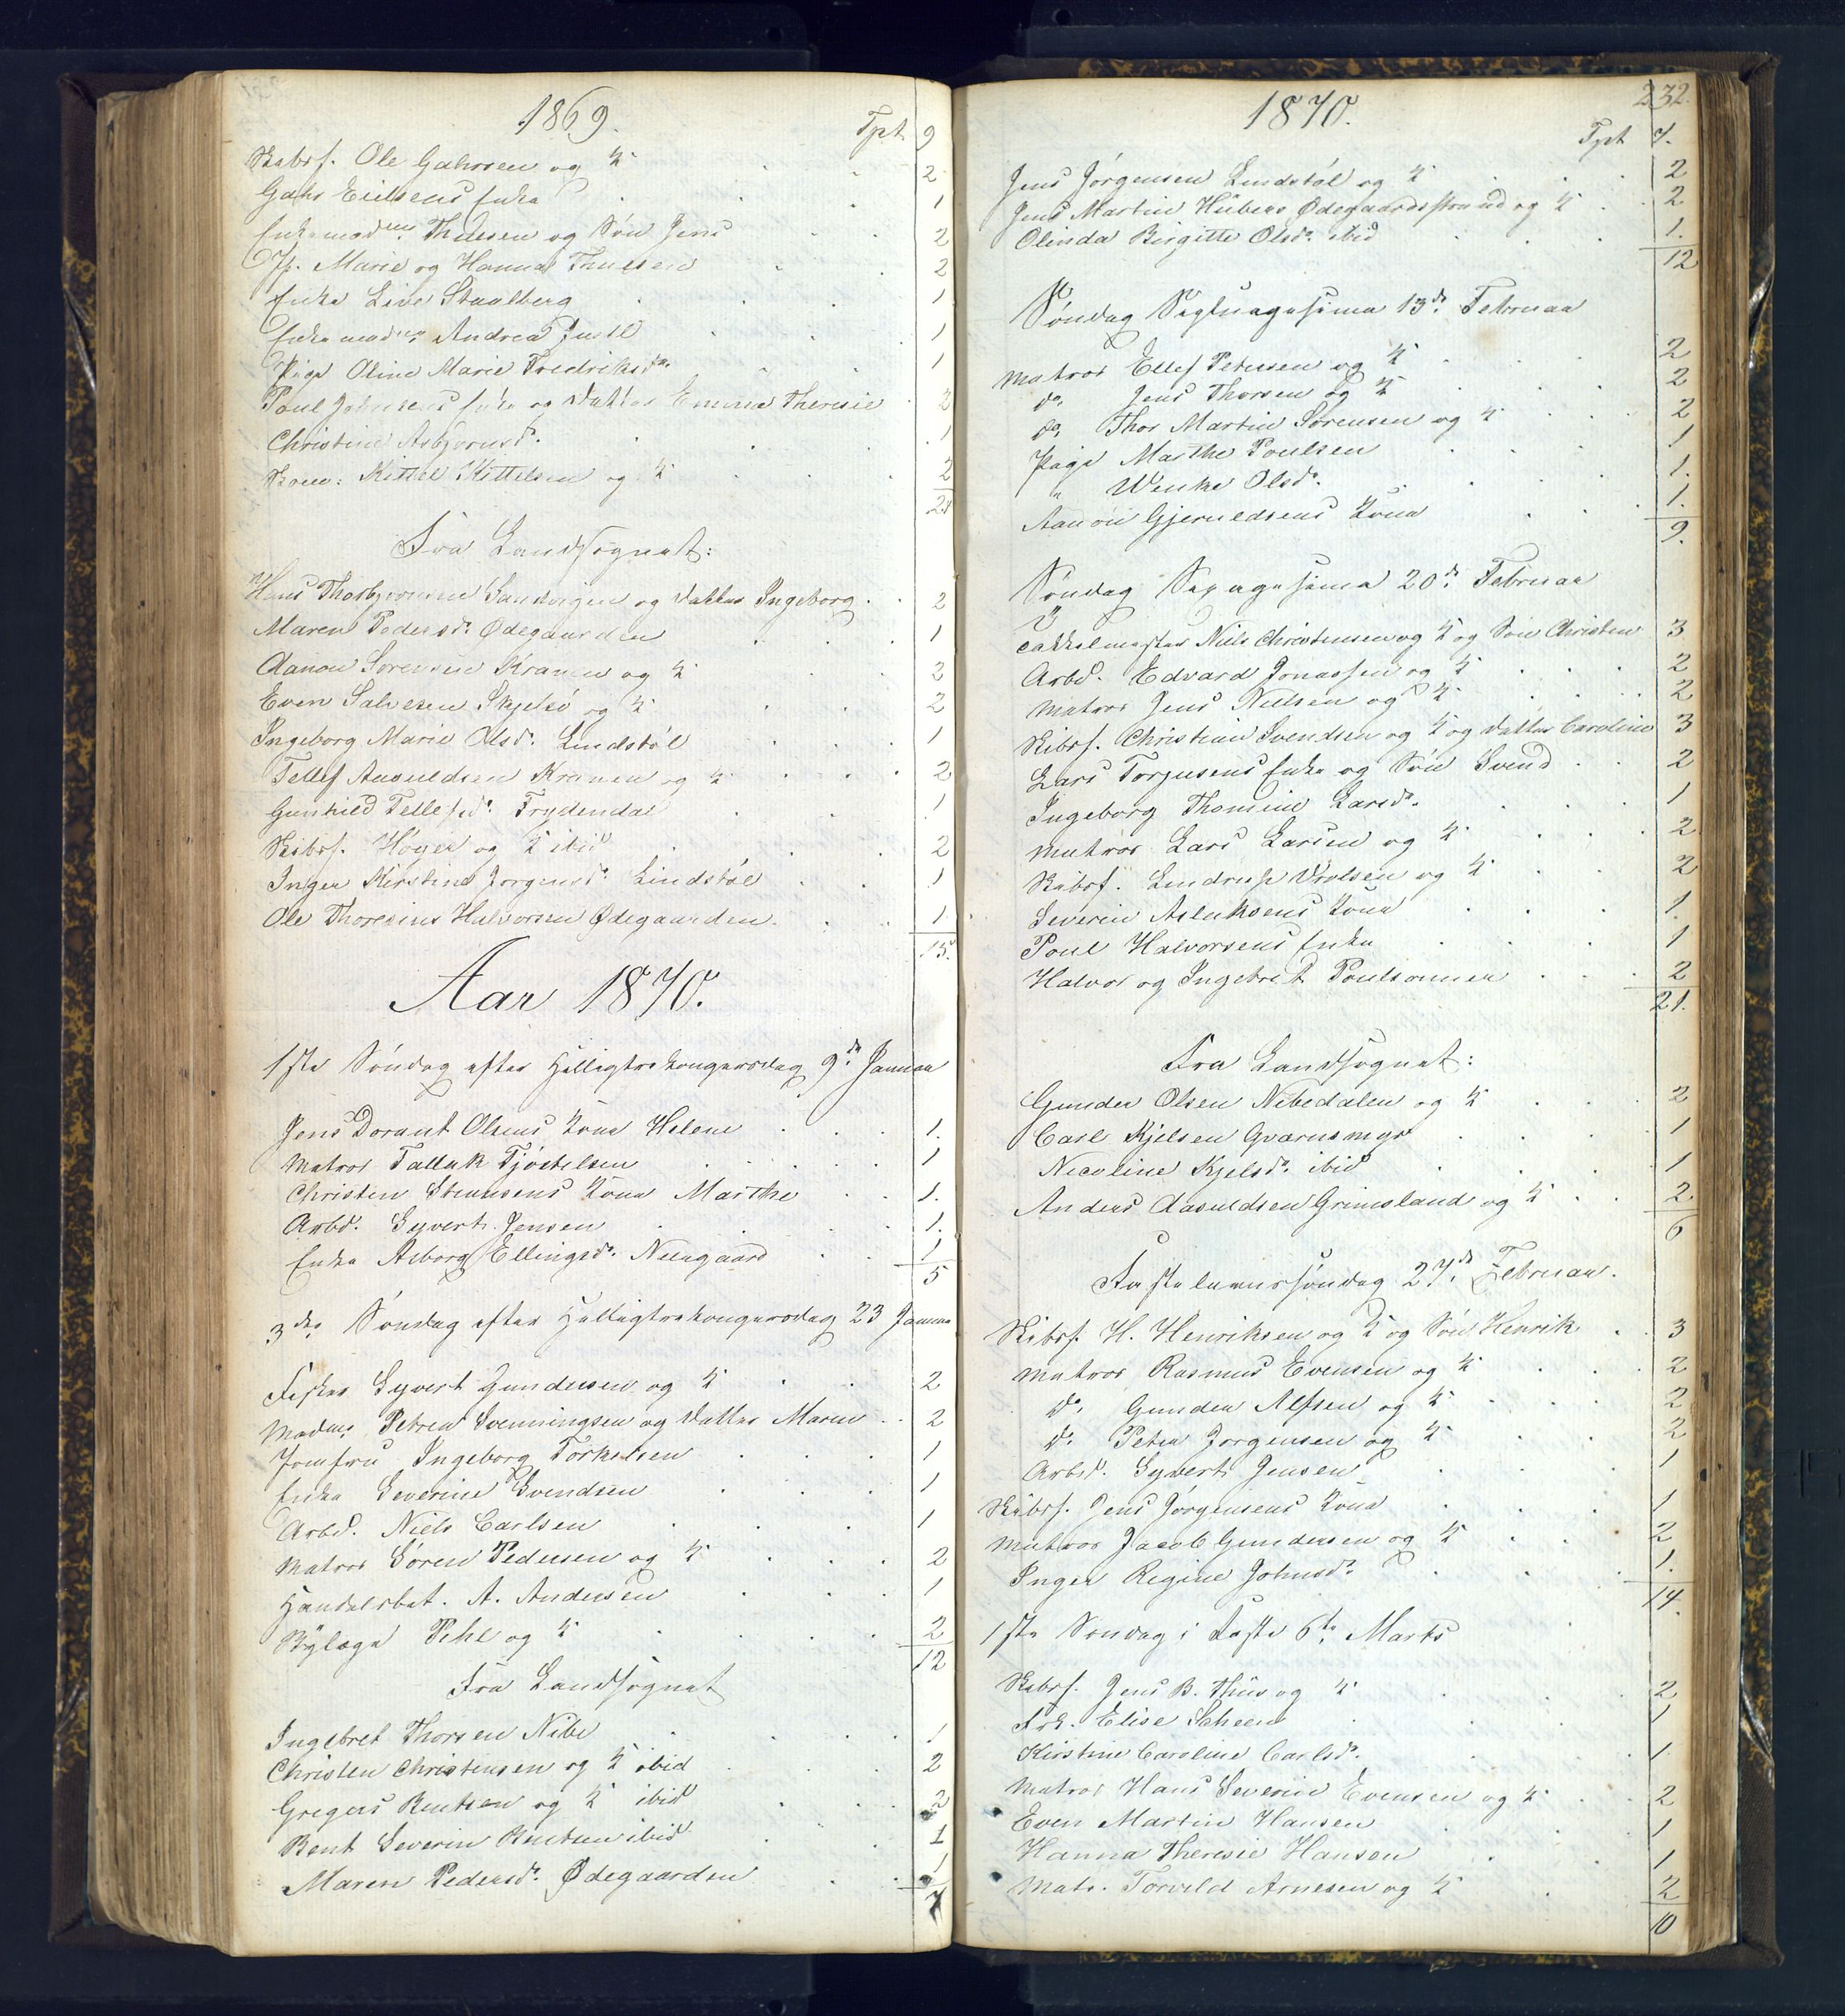 1869.
Tpt. 9
Skibsf. Ole Gahrsen og K. 2
Gahr Eielsens Enke 1
Enkemadme Thuesen og Søn Jens 2
Jfr. Marie og Hanna Thuesen 2
Enke Live Staalberg 1
Enkemadme Andrea Juell 1
Pige Oline Marie Fredriksdr. 1
Poul Johnsens Enke og Datter Emma Theresie 2
Christine Asbjørnsdr. 1
Skom: Kittel Kittelsen og K. 2
Fra Landsognet:
Hans Thorbjørnsen Sandvigen og Datter Ingeborg 2
Maren Pedersdr. Ødegaarden 1
Aanon Sørensen Kranen og K 2
Even Salvesen Skjelsø og K. 2
Ingeborg Marie Olsdr. Lindstøl 1
Tellef Aasuldsen Kranen og K. 2
Gunhild Tellefsdr. Frydendal 1
Skibsf. Høyer og K ibid 2
Inger Kirstine Jørgensdr. Lindstøl 1
Ole Thoresius Halvorsen Ødegaarden 1
15.
Aar 1870.
1ste Søndag efter Helligtrekongersdag 9de Januar
Jens Dorant Olsens Kone Helene 1.
Matros Tallak Tjøstelsen 1
Christen Steensens Kone Marthe 1.
Arbd. Syvert Jensen 1.
Enke Asborg Ellingsdr. Neergaard 1
5
3die Søndag efter Helligtrekongersdag 23 Januar
Fisker Syvert Gundersen og K 2
Madme Petrea Svenningsen og Datter Maren 2
Jomfru Ingeborg Torkelsen 1
Enke Severine Svendsen 1
Arbd. Niels Carlsen 1
Matros Søren Pedersen og K 2
Handelsbet. A. Andersen 1
Bylæge Pihl og K 2
12
Fra Landsognet
Ingebret Thorsen Nibe 1
Christen Christensen og K ibid 2
Gregers Bentsen og K ibid 2
Bent Severin Bentsen ibid 1
Maren Pedersdr. Ødegaarden 1
7
1870.
232.
Tpt 7.
Jens Jørgensen Lindstøl og K 2
Jens Martin Hübers Ødegaardsstrand og K 2
Olinda Birgitte Olsdr. ibid 1.
12
Søndag Septuagesima 13de Februar
Matros Ellef Petersen og K 2
do. Jens Thorsen og K 2
do. Thor Martin Sørensen og K 2
Pige Marthe Poulsen 1
" Wenke Olsdr. 1.
Aanon Gjeruldsens Kone 1.
9.
Søndag Sexagesima 20de Februar
Takkelmester Niels Christensen og K og Søn Christen 3
Arbd. Edvard Jonassen og K 2
Matros Jens Nielsen og K 2
Skibsf. Christian Svendsen og K og Datter Caroline 3
Lars Torjusens Enke og Søn Svend 2
Ingeborg Thomine Larsdr. 1
Matros Lars Larsen og K 2
Skibsf. Lindrup Vrolsen og K 2
Severin Aslaksens Kone 1.
Poul Halvorsens Enke 1
Halvor og Ingebret Poulsønner 2
21.
Fra Landsognet:
Gunder Olsen Nibedalen og K 2
Carl Kjelsen Qværnsmyr 1
Nicoline Kjelsdr. ibid 1
Anders Aasuldsen Grimsland og K 2
6
Fastelavnssøndag 27de Februar.
Skibsf. H. Henriksen og K og Søn Henrik 3
Matros Rasmus Evensen og K 2
do. Gunder Alfsen og K 2
do. Peter Jørgensen og K 2
Arbd. Syvert Jensen 1
Skibsf. Jens Jørgensens Kone 1
Matros Jacob Gundersen og K 2
Inger Regine Johnsdr. 1.
14.
1ste Søndag i Faste 6te Marts
Skibsf. Jens B. Thus og K 2
Frk. Elise Scheen 1
Kirstine Caroline Carlsdr. 1
Matros Hans Severin Evensen og K 2
Even Martin Hansen 1
Hanna Theresie Hansen 1
Matr. Torvild Arnesen og K 2
10